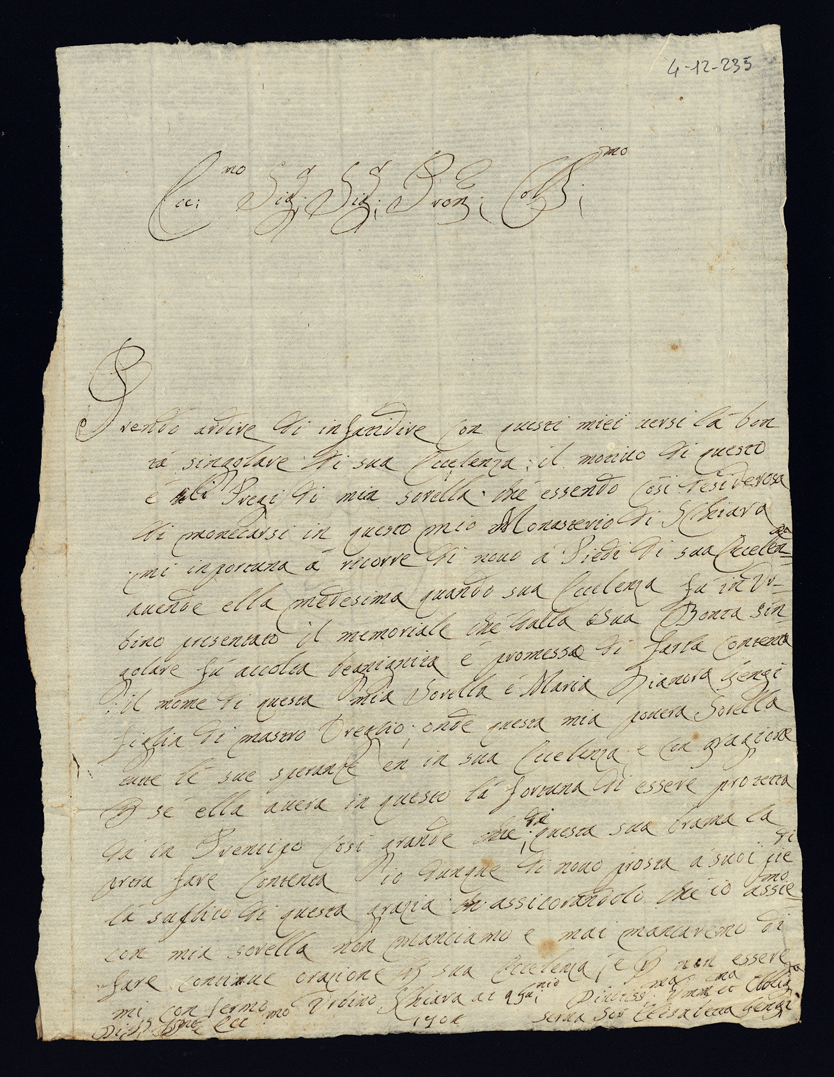 4-12-235
Ecc:mo Sig:r Sig:r Pron: Col:mo
Prendo ardire di infasidire con questi miei uersi la bon
tà singolare di sua Eccelenza; il motiuo di questo
è li Pregi di mia sorella che essendo così desiderosa
di monecarsi in questo mio Monasterio di S Chiara
mi inportuna à ricorre di nouo a Piedi di sua Eccelenza
auende ella medesima quando sua Eccelenza fu in Vr=
bino presentato il memoriale che dalla sua Bonta sin
golare fù accolta è promessa di farla contenta
il nome di questa mia Sorella è Maria Dianora Gengi
figlia di mastro Oreglio; onde questa mia pouera Sorella
tutte le sue speranze en in sua Eccelenza e con ragione
P se ella auera in questo la fortuna di essere protetta
da in Prencipo così grande che di questa sua brama la
potra fare contenta io dunque di nouo prosta a suoi pie di
la suplico di questa grazia assicorandolo che io assie=mo
con mia sorella non manciamo e mai mancaremo di
fare continue orazione P sua Eccelenza, e P non essere
mi confermo Vrbino S Chiara ai 9 Gu:nio Diuotiss:ma Vmm:ma et Obblig:a
Di V Ecc:mo 1701 serua Sor Elisabetta Gengi